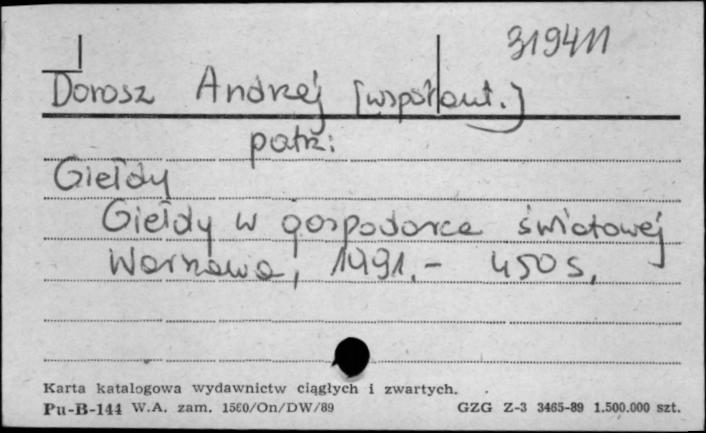 319411
Dorosz Andrzej [współaut.]
patrz:
Giełdy
Giełdy w gospodarce światowej
Warszawa, 1991.- 450 s.
Karta katalogowa wydawnictw ciągłych i zwartych.
Pu-B-144 W.A. zam. 1560/On/DW/89 GZG Z-3 3465-89 1.500.000 szt.